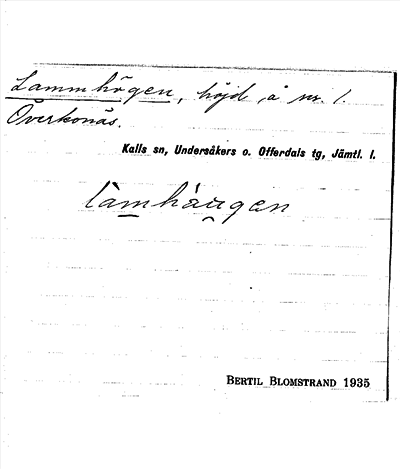 Lammhögen, höjd, å nr. 1.
Överkonäs.
Kalls sn, Undersåkers o. Offerdals tg, Jämtl. l.
làmhàu̯gen
BERTIL BLOMSTRAND 1935